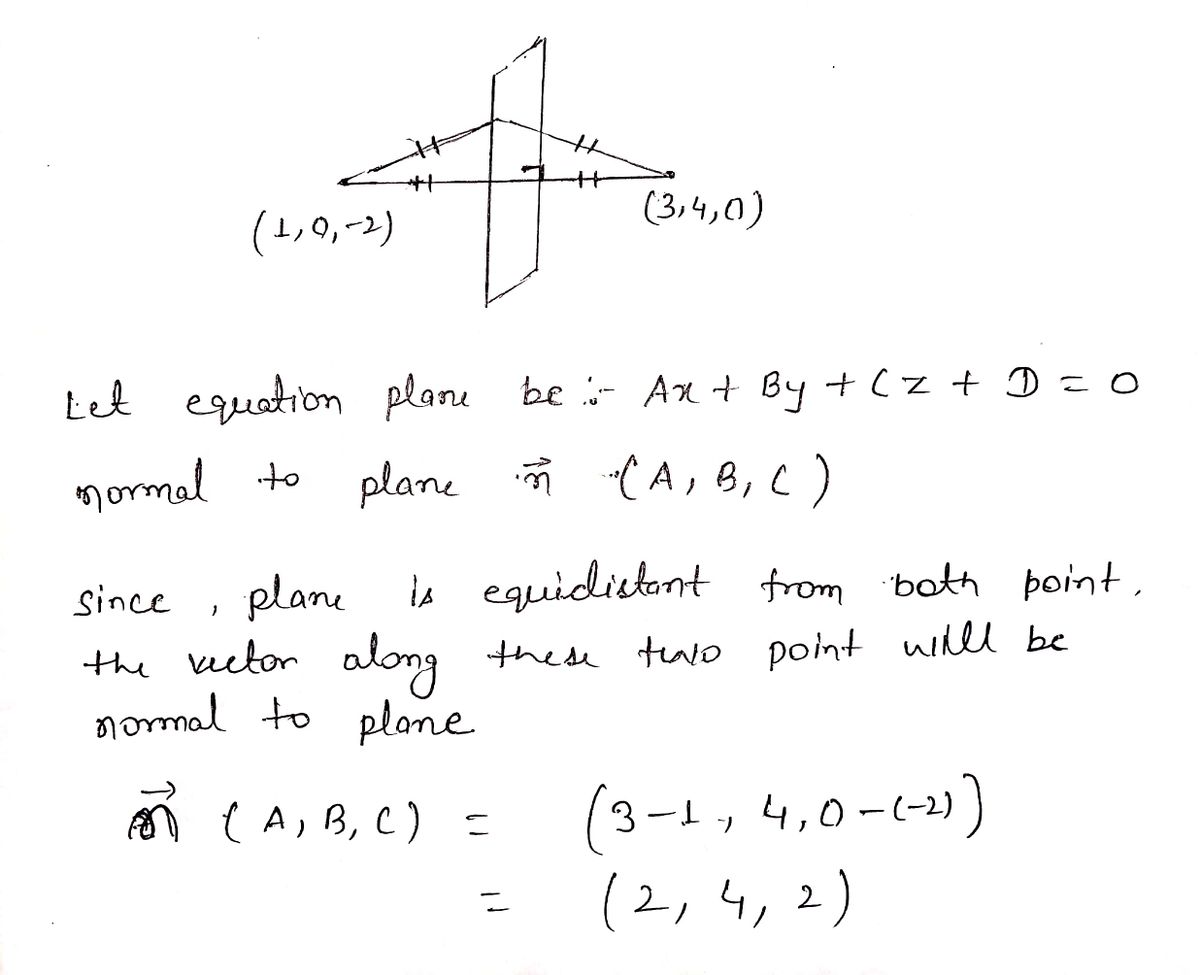 (1,0,-2) (3,4,0)
Let equation plane be :- Ax + By + Cz + D = 0
normal to plane n⃗ (A, B, C)
since, plane is equidistant from both point,
the vector along these two point will be
normal to plane
n⃗ (A, B, C) = (3-1, 4, 0-(-2))
= (2, 4, 2)